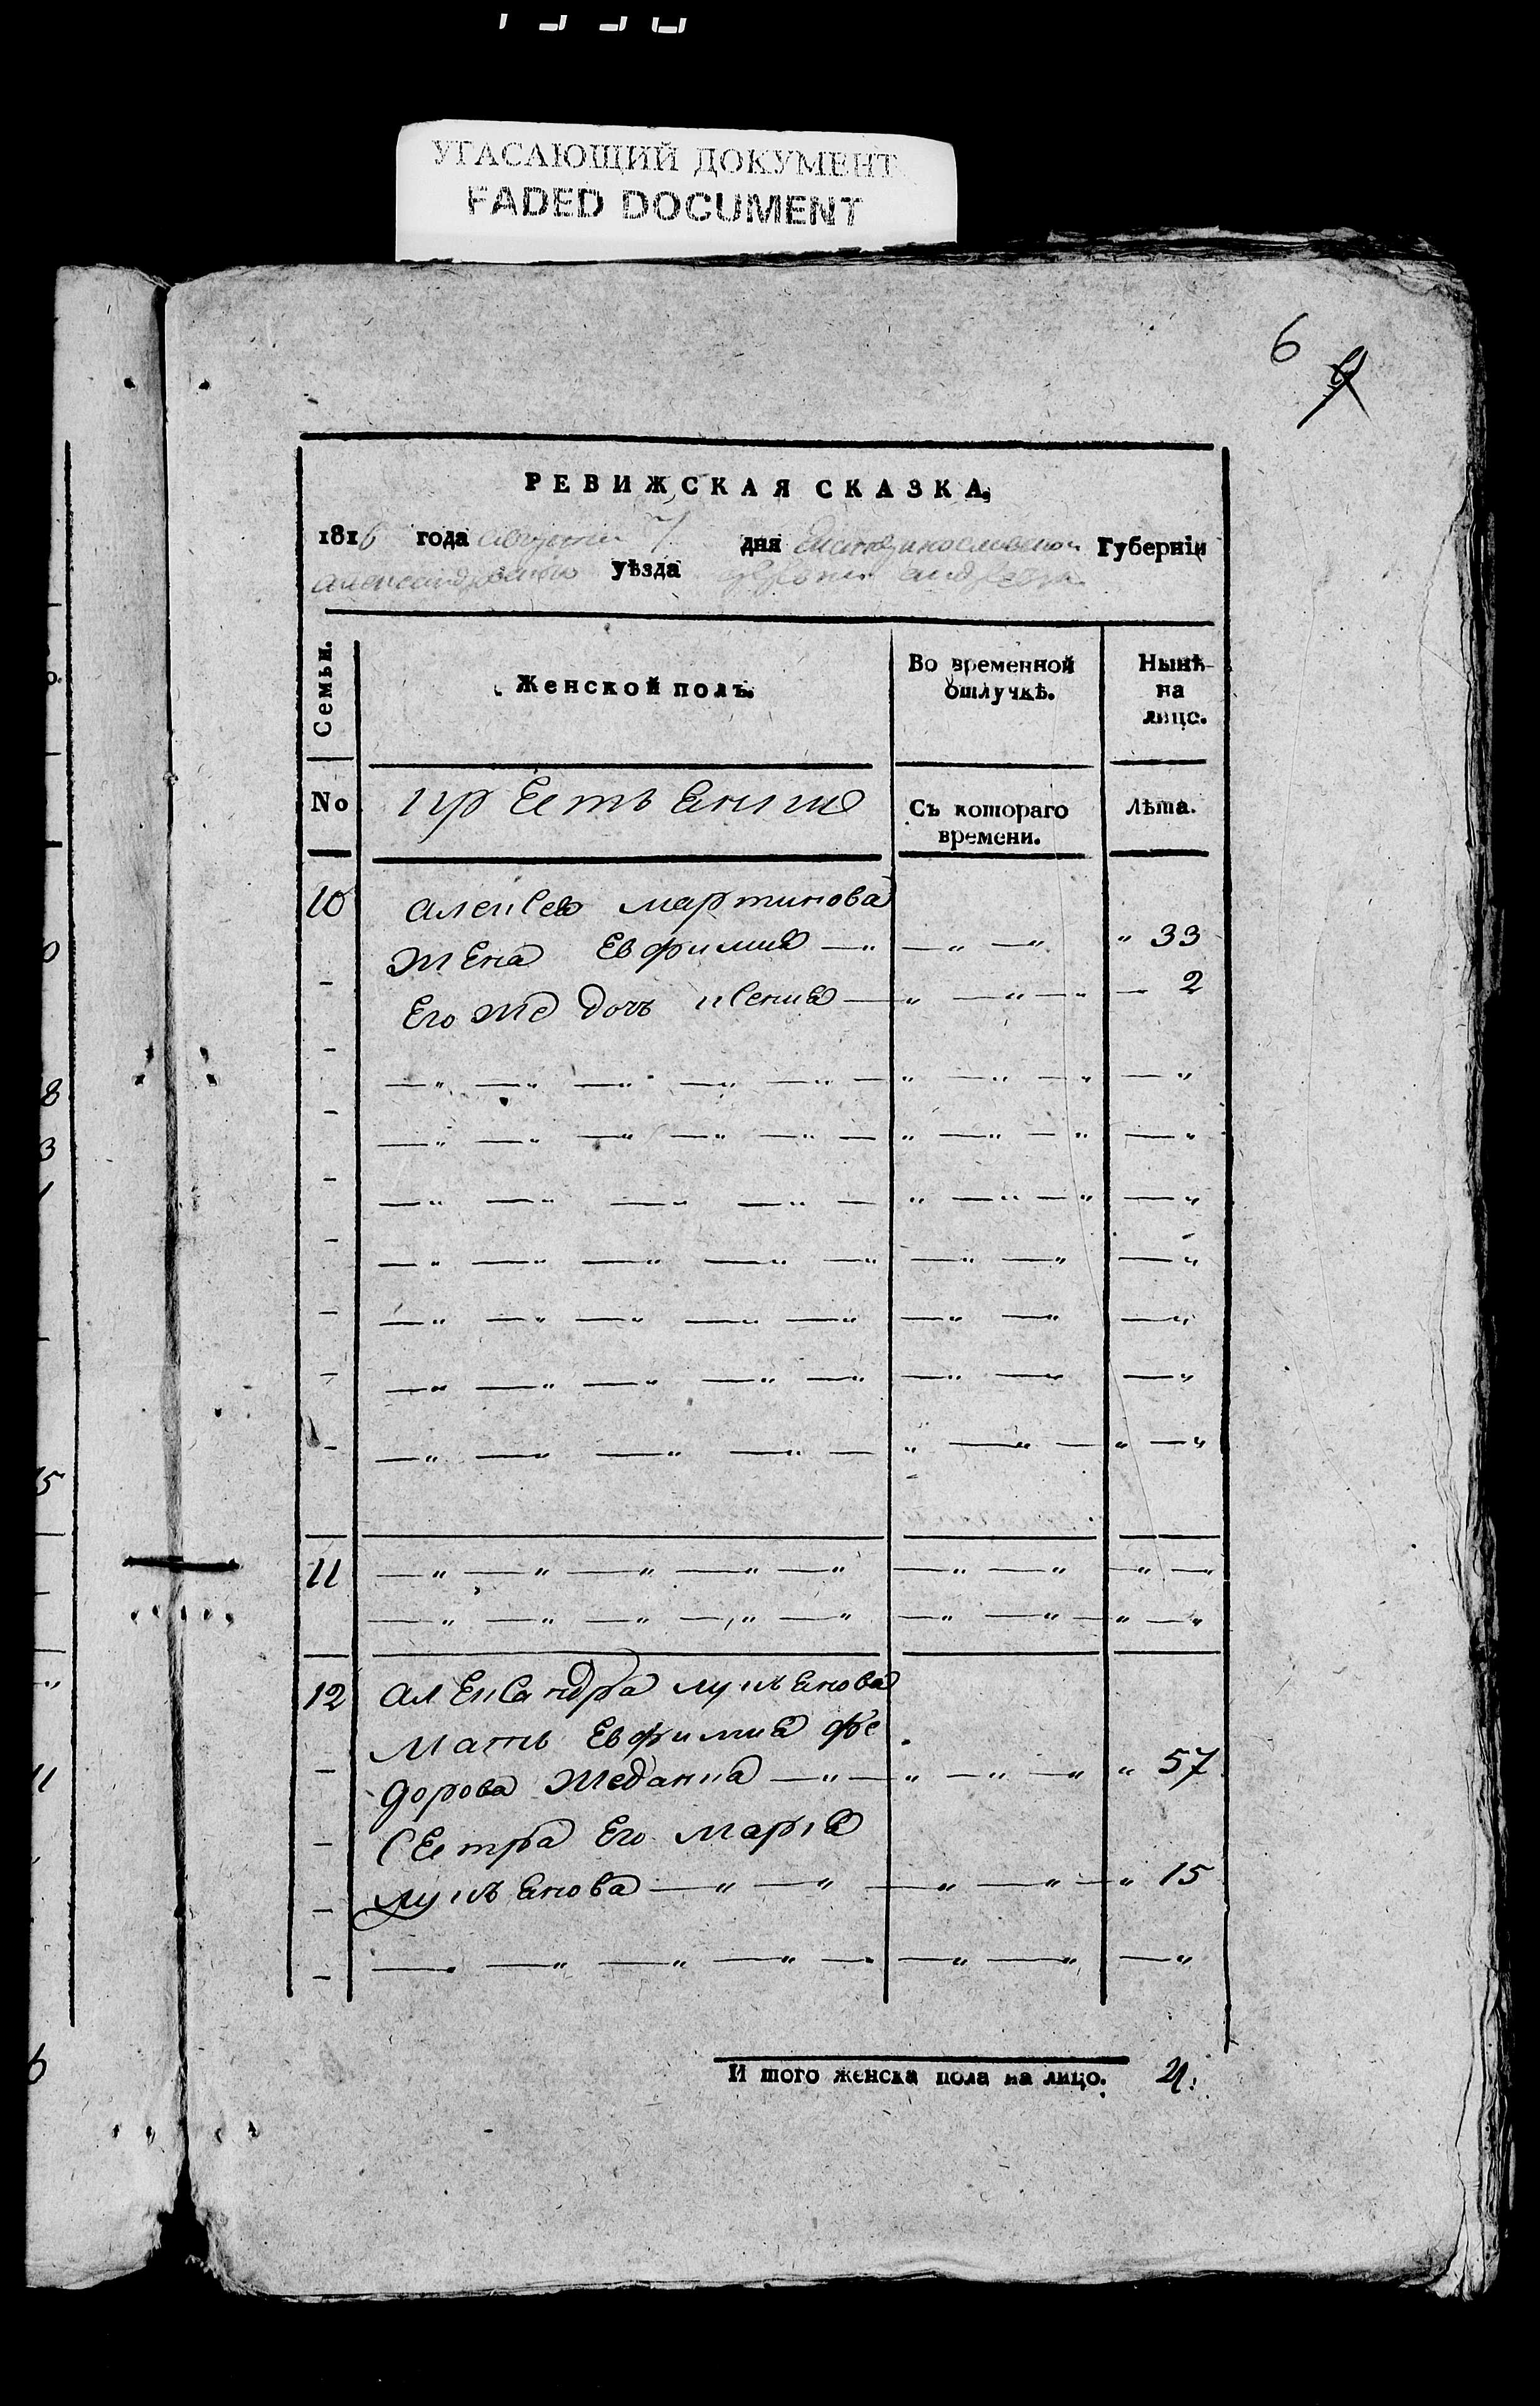 УГАСАЮЩИЙ ДОКУМЕНТ
FADED DOCUMENT
6
РЕВИЖСКАЯ СКАЗКА,
1816 года августа 7 дня Екатеринославской Губерніи
александровского уѣзда деревни
Семьи. Женской полъ. Во временной отлучкѣ. Нынѣ на лицо.
No крестьяние Съ котораго времени. лѣта.
10 алексея мартинова
жена Евфимия 33
Его же дочь ксения 2
11
12 александра лукьянова
мать Евфимия фе
дорова жедания 57
сестра Его мария
лукьянова 15
И того женска пола на лицо. 4.